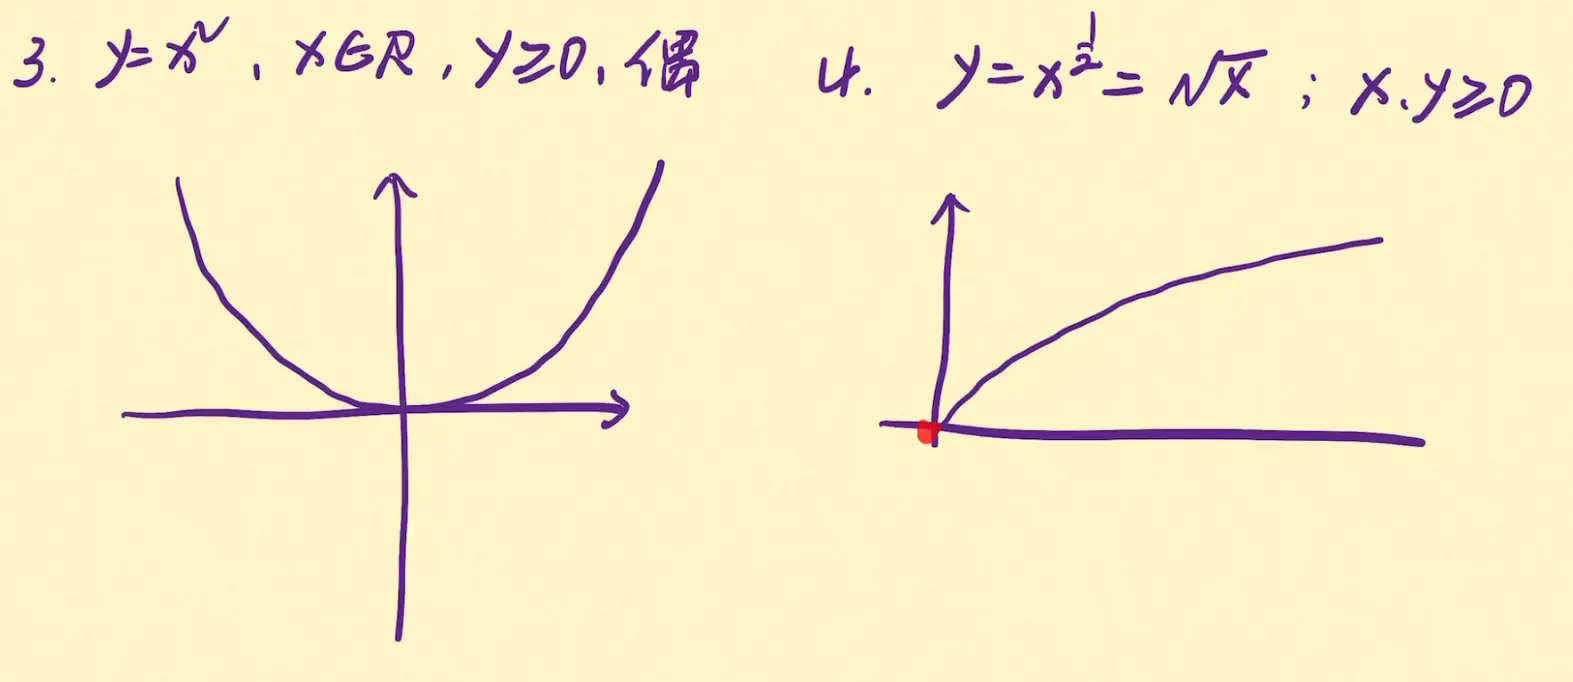 3. y=x², x∈R, y≥0, 偶
4. y=x^{\frac{1}{2}}=√x ; x、y≥0